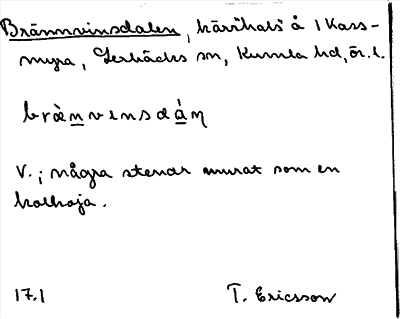 Brännvinsdalen, kärrhals å 1 Kass-
myra, Lerbäcks sn, Kumla hd, ör. l.
brä̀nvensdán
V.; några stenar murat som en
kolkoja.
17.1 T. Ericsson